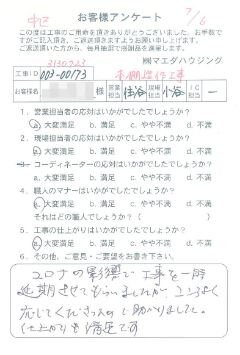 中区
7/6
お客様アンケート
この度は工事のご用命を頂きありがとうございました。お手数で
すがご記入頂き、ご返送頂きますようお願い申し上げます。
ご返送頂いた方から、毎月抽選で粗謝品を進呈します。
3130223
㈱マエダハウジング
工事ID 003-00173
本棚造作工事
お客様名 様 営業担当 住谷 現場担当 小谷 IC担当 ー
1. 営業担当者の応対はいかがでしたでしょうか?
a. 大変満足 b. 満足 c. やや不満 d. 不満
2. 現場担当者の応対はいかがでしたでしょうか?
a. 大変満足 b. 満足 c. やや不満 d. 不満
3. コーディネーターの応対はいかがでしたでしょうか?
a. 大変満足 b. 満足 c. やや不満 d. 不満
4. 職人のマナーはいかがでしたでしょうか?
a. 大変満足 b. 満足 c. やや不満 d. 不満
それはどの職人でしょうか? ( )
5. 工事の仕上がりはいかがでしたでしょうか?
a. 大変満足 b. 満足 c. やや不満 d. 不満
6. その他、ご意見・ご要望をお書き下さい。
コロナの影響で工事を一時
延期させてもらいましたが、こころよく
応じてくださったので助かりました。
仕上がりも満足です